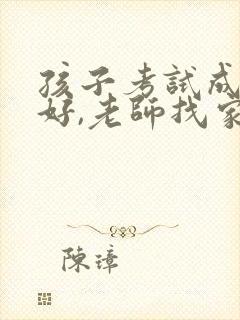 孩子考試成
好,老師找家
陳璋